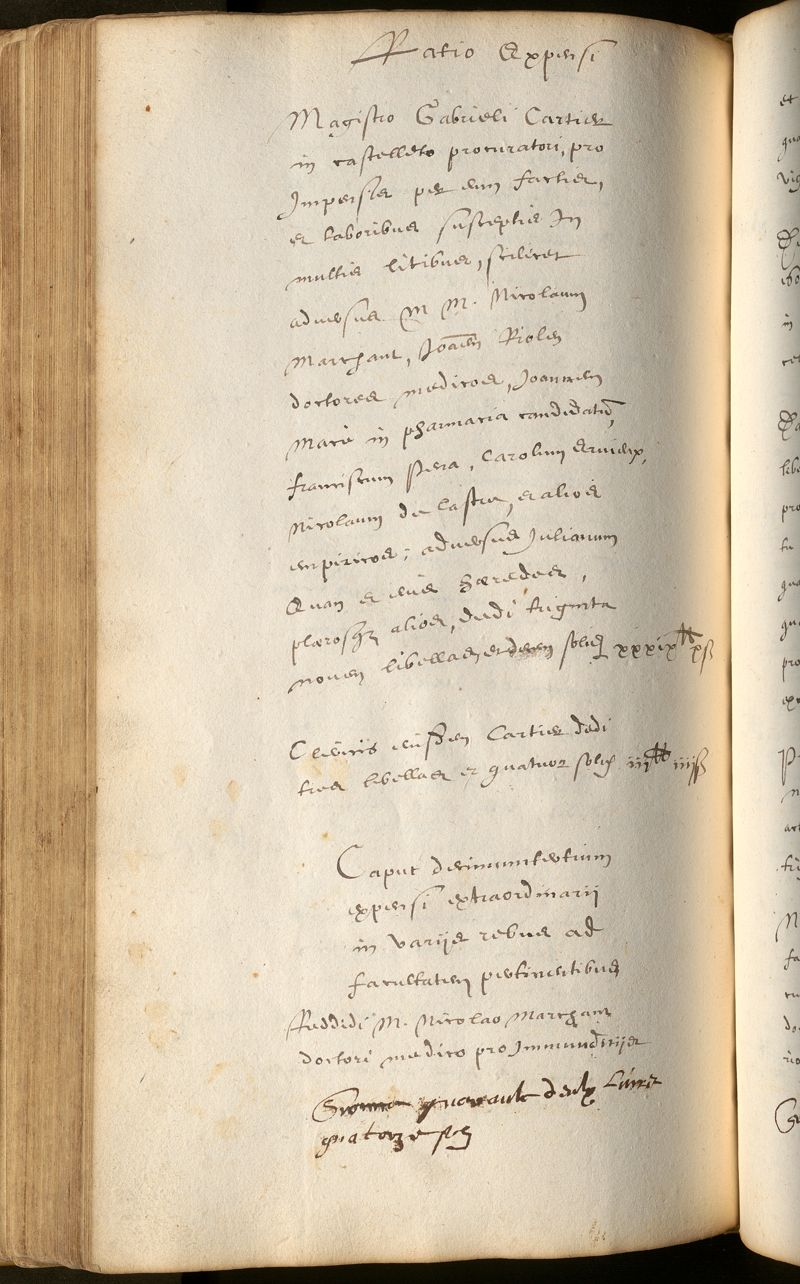 Ratio Expensi
Magistro Gabrieli Cartier
in castelleto procuratori, pro
Impensis per eum factis,
et laboribus susceptis In
multis litibus, scilicet
adversus M M. Nicolaum
Marchant, Joañem Riolen
doctores medicos, Joannem
Macé in pharmacia candidatũ,
franciscum Pena, Carolum
Nicolaum de la stre, et alios
empiricos; adversus Julianum
Quan et eius hæredes,
plærosq alios, dedi triginta
novem libellas, et decem solid xxxix tt xß
Clericis eiusdem Cartier dedi
tres libellas et quatuor solid iij tt iiijß
Caput decimumtertium
expensi extraordinarij
in varijs rebus ad
facultatem pertinentibus
Reddidi M. Nicolao Marchant
doctori medico pro
Somma quarante deulx Livres
quatorze